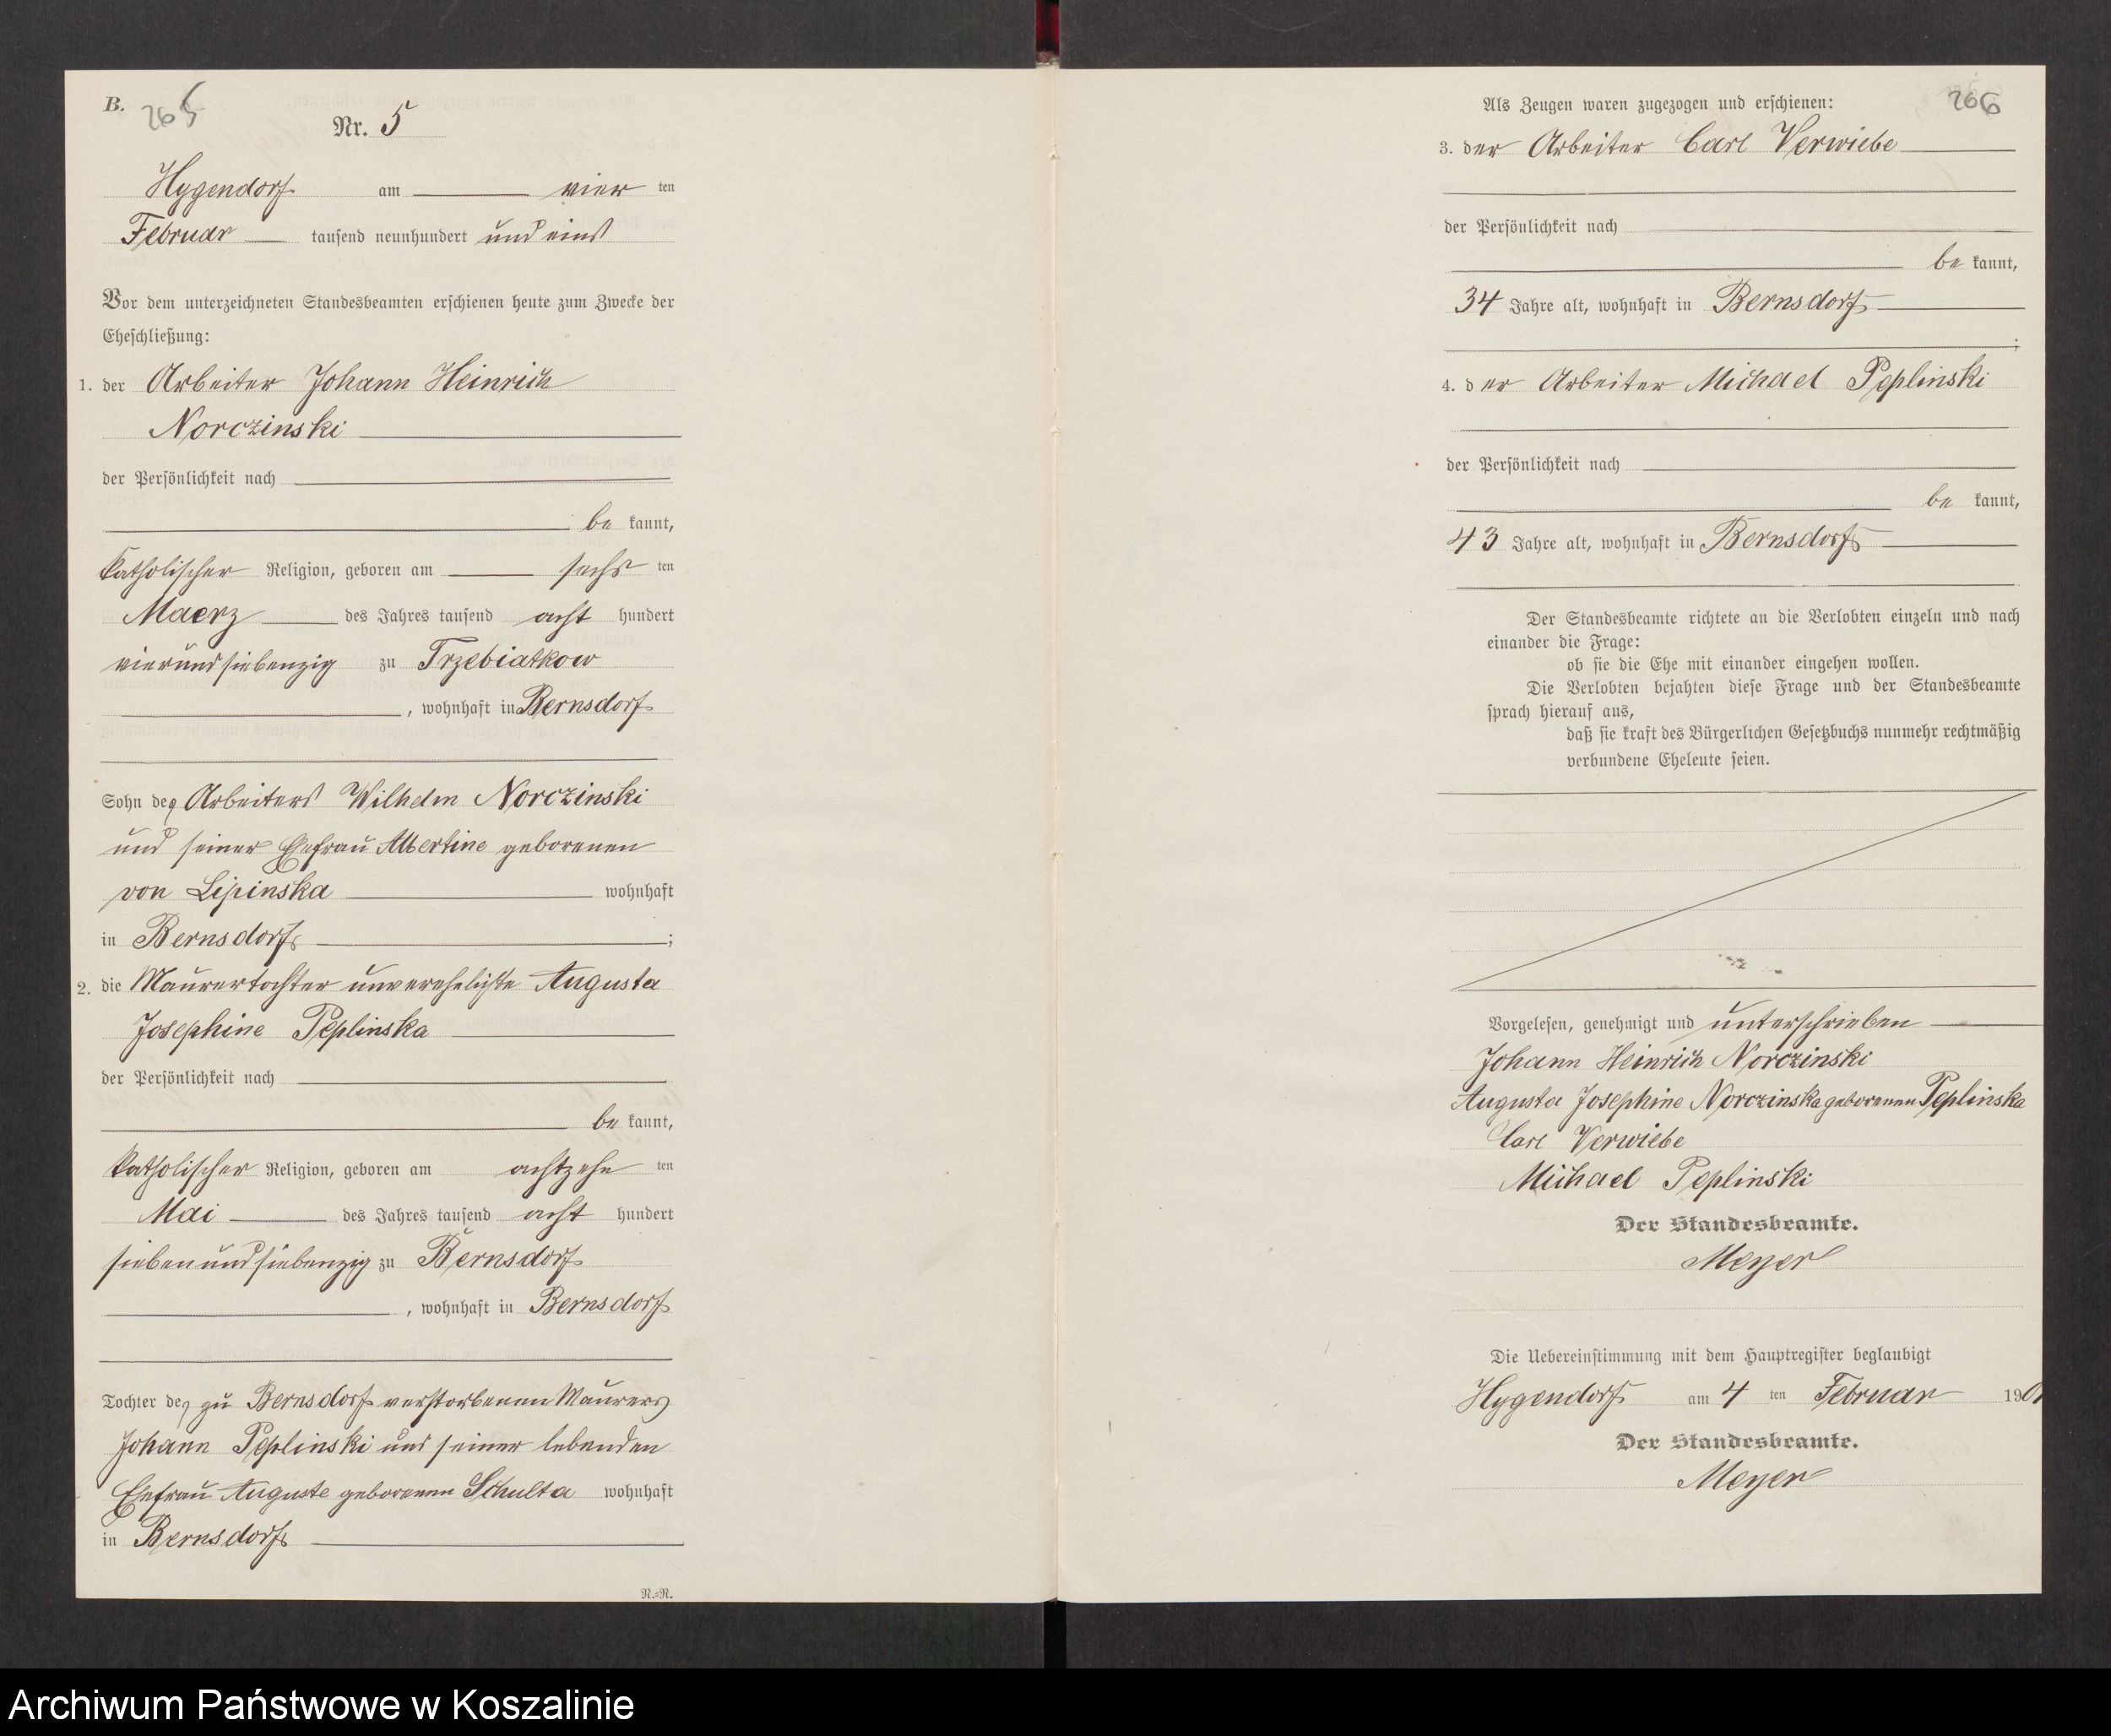 B.
265
Nr. 5
Hygendorf am vier ten
Februar tausend neunhundert und eins
Vor dem unterzeichneten Standesbeamten erschienen heute zum Zwecke der
Eheschließung:
1. der Arbeiter Johann Heinrich
Norczinski
der Persönlichkeit nach
be kannt,
katholischer Religion, geboren am sechs ten
Maerz des Jahres tausend acht hundert
vierundsiebenzig zu Trzebiatkow
, wohnhaft in Bernsdorf
Sohn des Arbeiters Wilhelm Norczinski
und seiner Ehefrau Albertine geborenen
von Lipinska wohnhaft
in Bernsdorf ;
2. die Maurertochter unverehelichte Augusta
Josephine Peplinska
der Persönlichkeit nach
be kannt,
katholischer Religion, geboren am achtzehn ten
Mai des Jahres tausend acht hundert
siebenundsiebenzig zu Bernsdorf
, wohnhaft in Bernsdorf
Tochter des zu Bernsdorf verstorbenen Maurers
Johann Peplinski und seiner lebenden
Ehefrau Auguste geborenen Schulta wohnhaft
in Bernsdorf
N.=N.
Als Zeugen waren zugezogen und erschienen:
206
3. der Arbeiter Carl Verwiebe
der Persönlichkeit nach
be kannt,
34 Jahre alt, wohnhaft in Bernsdorf
;
4. der Arbeiter Michael Peplinski
der Persönlichkeit nach
be kannt,
43 Jahre alt, wohnhaft in Bernsdorf
Der Standesbeamte richtete an die Verlobten einzeln und nach
einander die Frage:
ob sie die Ehe mit einander eingehen wollen.
Die Verlobten bejahten diese Frage und der Standesbeamte
sprach hierauf aus,
daß sie kraft des Bürgerlichen Gesetzbuchs nunmehr rechtmäßig
verbundene Eheleute seien.
Vorgelesen, genehmigt und unterschrieben
Johann Heinrich Norczinski
Augusta Josephine Norczinska geborenen Peplinska
Carl Verwiebe
Michael Peplinski
Der Standesbeamte.
Meyer
Die Uebereinstimmung mit dem Hauptregister beglaubigt
Hygendorf am 4 ten Februar 1901
Der Standesbeamte.
Meyer
Archiwum Państwowe w Koszalinie